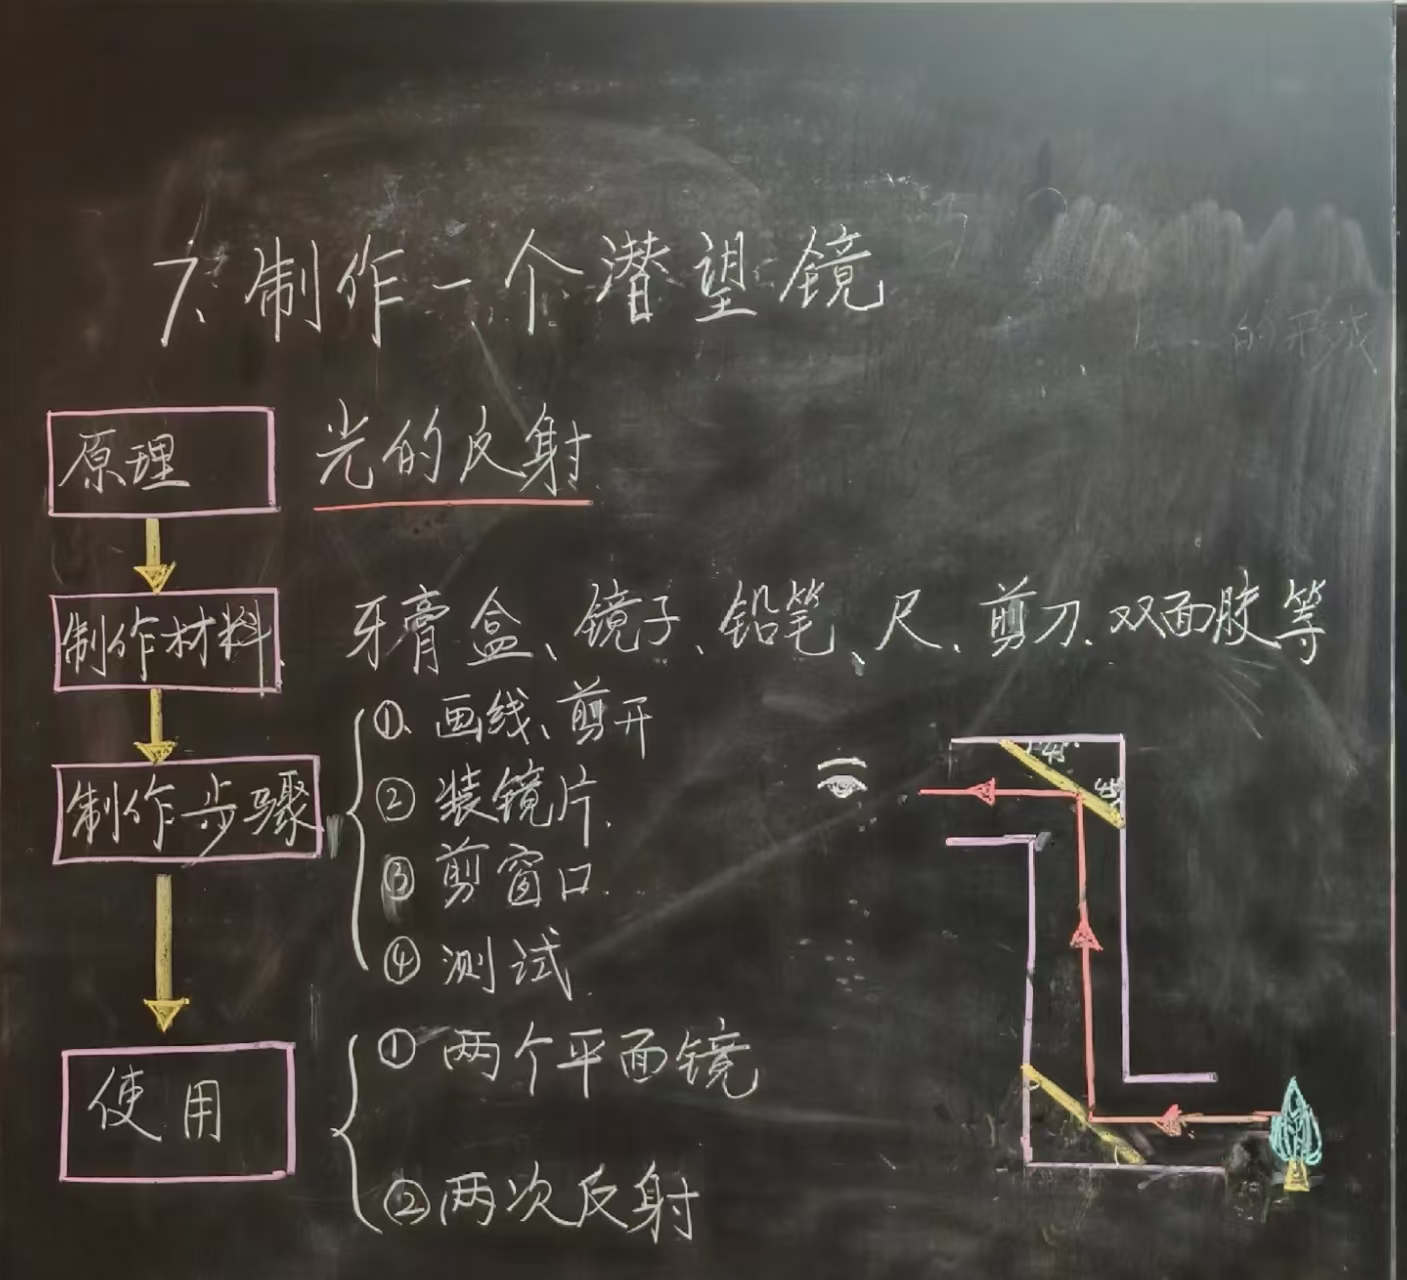 7、制作一个潜望镜
的形成
原理 光的反射
制作材料 牙膏盒、镜子、铅笔、尺、剪刀、双面胶等
制作步骤
①、画线、剪开
②装镜片
③剪窗口
④测试
45°
45°
使用
①两个平面镜
②两次反射